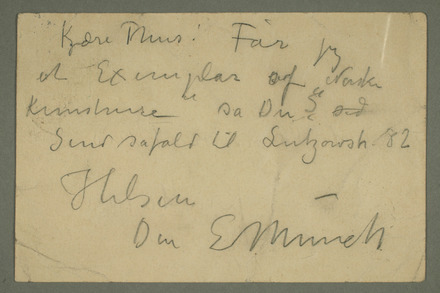 Kjære Thiis! Får jeg
et Exemplar af "Norske
Kunstnere" sa Du?
Send isåfald til Lutzowstr. 82
Hilsen
Din E Munch